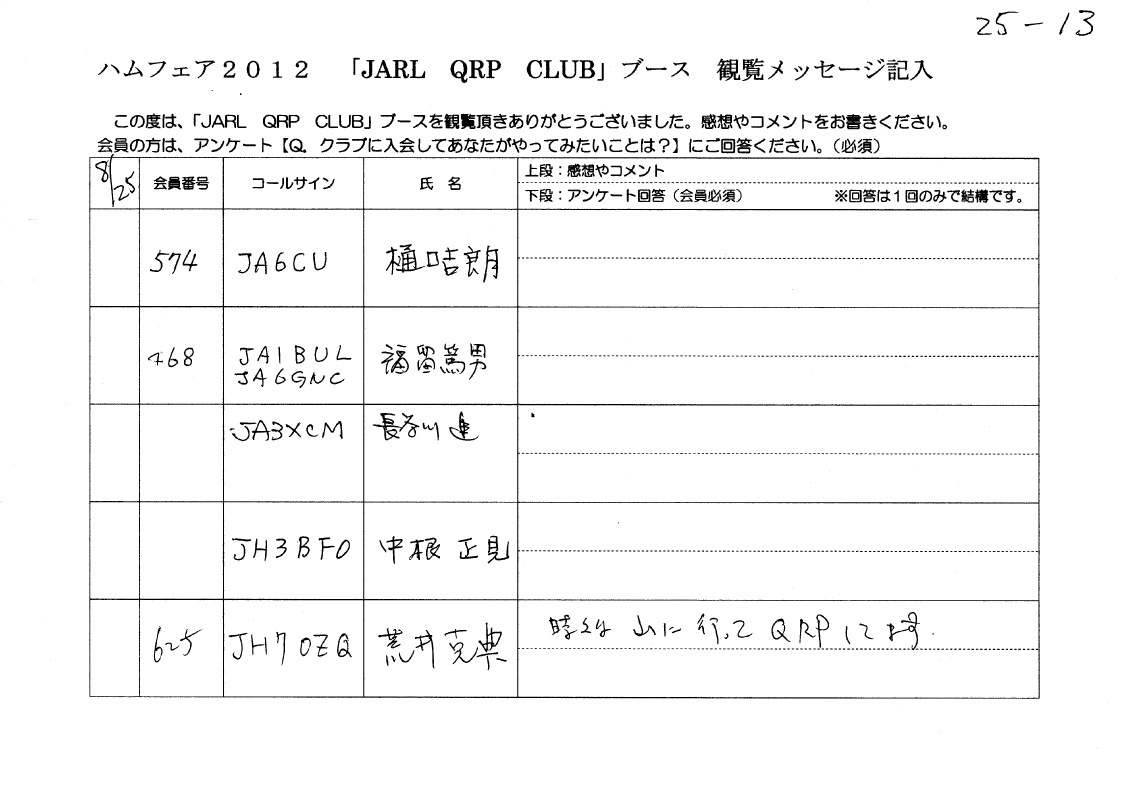 25-13
ハムフェア2012 「JARL QRP CLUB」ブース 観覧メッセージ記入
この度は、「JARL QRP CLUB」ブースを観覧頂きありがとうございました。感想やコメントをお書きください。
会員の方は、アンケート【Q. クラブに入会してあなたがやってみたいことは？】にご回答ください。（必須）
8/25 会員番号 コールサイン 氏 名 上段：感想やコメント
下段：アンケート回答（会員必須） ※回答は1回のみで結構です。
574 JA6CU 樋口吉朗
468 JA1BUL 福留篤男
JA6GNC
JA3XCM 長谷川 進
JH3BFO 中根 正見
625 JH7OZQ 荒井克典 時々は 山に 行って QRP してます.